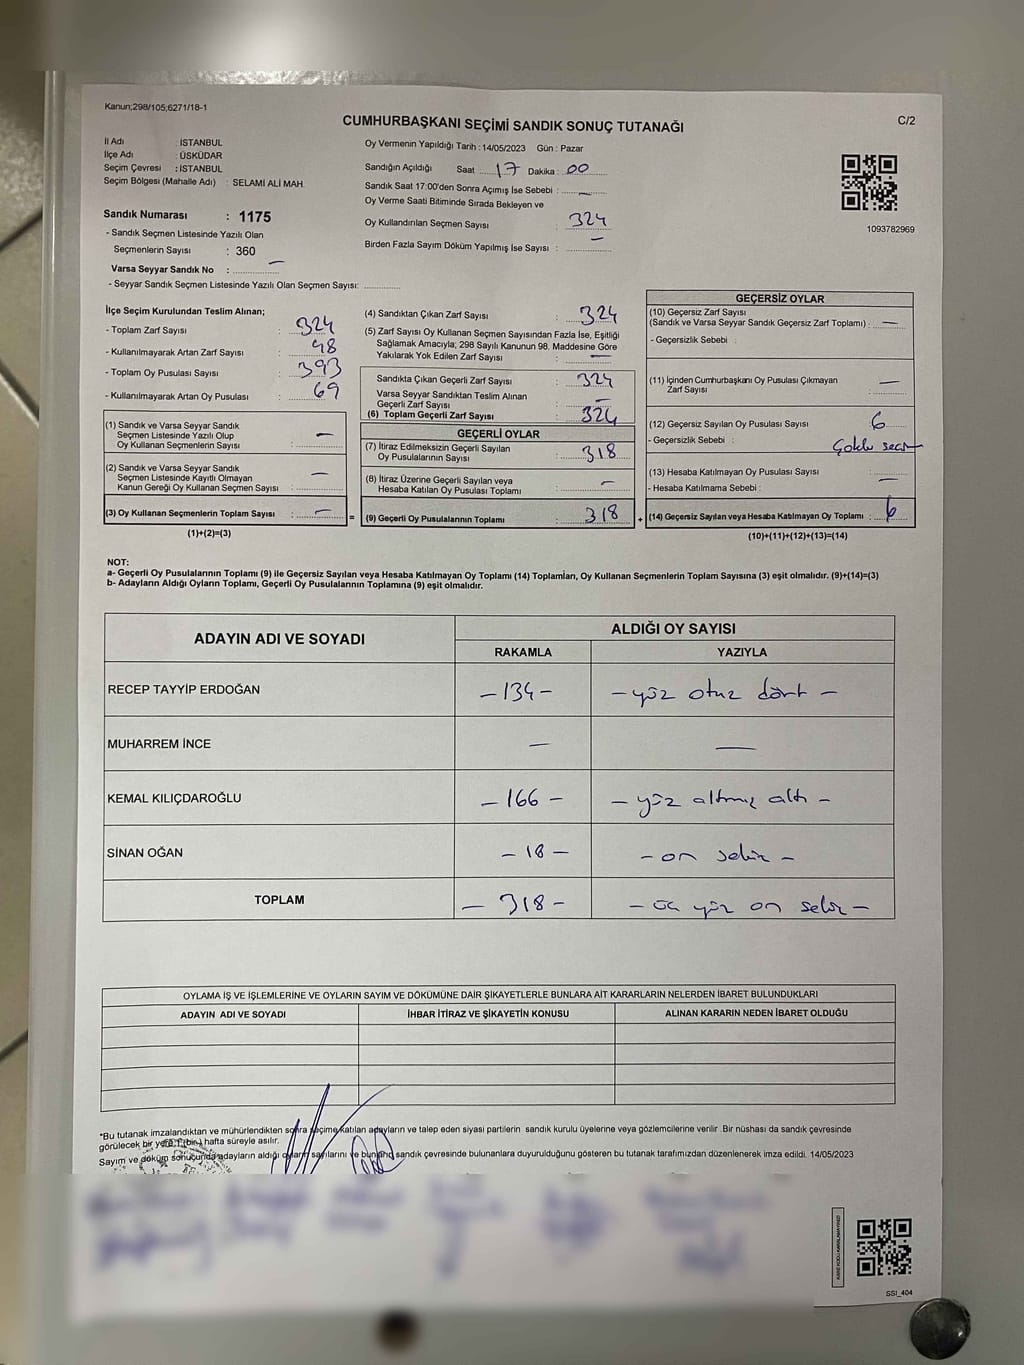 Kanun;298/105;6271/18-1
CUMHURBAŞKANI SEÇİMİ SANDIK SONUÇ TUTANAĞI
C/2
İl Adı : İSTANBUL
İlçe Adı : ÜSKÜDAR
Seçim Çevresi : İSTANBUL
Seçim Bölgesi (Mahalle Adı) : SELAMİ ALİ MAH.
Sandık Numarası : 1175
- Sandık Seçmen Listesinde Yazılı Olan
Seçmenlerin Sayısı : 360
Varsa Seyyar Sandık No : —
- Seyyar Sandık Seçmen Listesinde Yazılı Olan Seçmen Sayısı:
Oy Vermenin Yapıldığı Tarih : 14/05/2023 Gün : Pazar
Sandığın Açıldığı Saat 17 Dakika : 00
Sandık Saat 17:00'den Sonra Açımış İse Sebebi : —
Oy Verme Saati Bitiminde Sırada Bekleyen ve
Oy Kullandırılan Seçmen Sayısı : 324
Birden Fazla Sayım Döküm Yapılmış İse Sayısı : —
1093782969
İlçe Seçim Kurulundan Teslim Alınan;
- Toplam Zarf Sayısı : 324
- Kullanılmayarak Artan Zarf Sayısı : 48
- Toplam Oy Pusulası Sayısı : 393
- Kullanılmayarak Artan Oy Pusulası : 69
(1) Sandık ve Varsa Seyyar Sandık
Seçmen Listesinde Yazılı Olup
Oy Kullanan Seçmenlerin Sayısı : —
(2) Sandık ve Varsa Seyyar Sandık
Seçmen Listesinde Kayıtlı Olmayan
Kanun Gereği Oy Kullanan Seçmen Sayısı : —
(3) Oy Kullanan Seçmenlerin Toplam Sayısı : — =
(1)+(2)=(3)
(4) Sandıktan Çıkan Zarf Sayısı : 324
(5) Zarf Sayısı Oy Kullanan Seçmen Sayısından Fazla İse, Eşitliği
Sağlamak Amacıyla; 298 Sayılı Kanunun 98. Maddesine Göre
Yakılarak Yok Edilen Zarf Sayısı : —
Sandıkta Çıkan Geçerli Zarf Sayısı : 324
Varsa Seyyar Sandıktan Teslim Alınan
Geçerli Zarf Sayısı : —
(6) Toplam Geçerli Zarf Sayısı : 324
GEÇERLİ OYLAR
(7) İtiraz Edilmeksizin Geçerli Sayılan
Oy Pusulalarının Sayısı : 318
(8) İtiraz Üzerine Geçerli Sayılan veya
Hesaba Katılan Oy Pusulası Toplamı : —
(9) Geçerli Oy Pusulalarının Toplamı : 318 +
GEÇERSİZ OYLAR
(10) Geçersiz Zarf Sayısı
(Sandık ve Varsa Seyyar Sandık Geçersiz Zarf Toplamı) : —
- Geçersizlik Sebebi :
(11) İçinden Cumhurbaşkanı Oy Pusulası Çıkmayan
Zarf Sayısı : —
(12) Geçersiz Sayılan Oy Pusulası Sayısı : 6
- Geçersizlik Sebebi : Çoklu
(13) Hesaba Katılmayan Oy Pusulası Sayısı : —
- Hesaba Katılmama Sebebi :
(14) Geçersiz Sayılan veya Hesaba Katılmayan Oy Toplamı : 6
(10)+(11)+(12)+(13)=(14)
NOT:
a- Geçerli Oy Pusulalarının Toplamı (9) ile Geçersiz Sayılan veya Hesaba Katılmayan Oy Toplamı (14) Toplamları, Oy Kullanan Seçmenlerin Toplam Sayısına (3) eşit olmalıdır. (9)+(14)=(3)
b- Adayların Aldığı Oyların Toplamı, Geçerli Oy Pusulalarının Toplamına (9) eşit olmalıdır.
ADAYIN ADI VE SOYADI ALDIĞI OY SAYISI
RAKAMLA YAZIYLA
RECEP TAYYİP ERDOĞAN —134— —yüz otuz dört—
MUHARREM İNCE — —
KEMAL KILIÇDAROĞLU —166— —yüz altmış altı—
SİNAN OĞAN —18— —on sekiz—
TOPLAM —318— —üç yüz on sekiz—
OYLAMA İŞ VE İŞLEMLERİNE VE OYLARIN SAYIM VE DÖKÜMÜNE DAİR ŞİKAYETLERLE BUNLARA AİT KARARLARIN NELERDEN İBARET BULUNDUKLARI
ADAYIN ADI VE SOYADI İHBAR İTİRAZ VE ŞİKAYETİN KONUSU ALINAN KARARIN NEDEN İBARET OLDUĞU
*Bu tutanak imzalandıktan ve mühürlendikten sonra seçime katılan adayların ve talep eden siyasi partilerin sandık kurulu üyelerine veya gözlemcilerine verilir .Bir nüshası da sandık çevresinde
görülecek bir yere 1 (bir) hafta süreyle asılır.
Sayım ve döküm sonucunda adayların aldığı oyların sayılarını ve bunların sandık çevresinde bulunanlara duyurulduğunu gösteren bu tutanak tarafımızdan düzenlenerek imza edildi. 14/05/2023
SSI_404